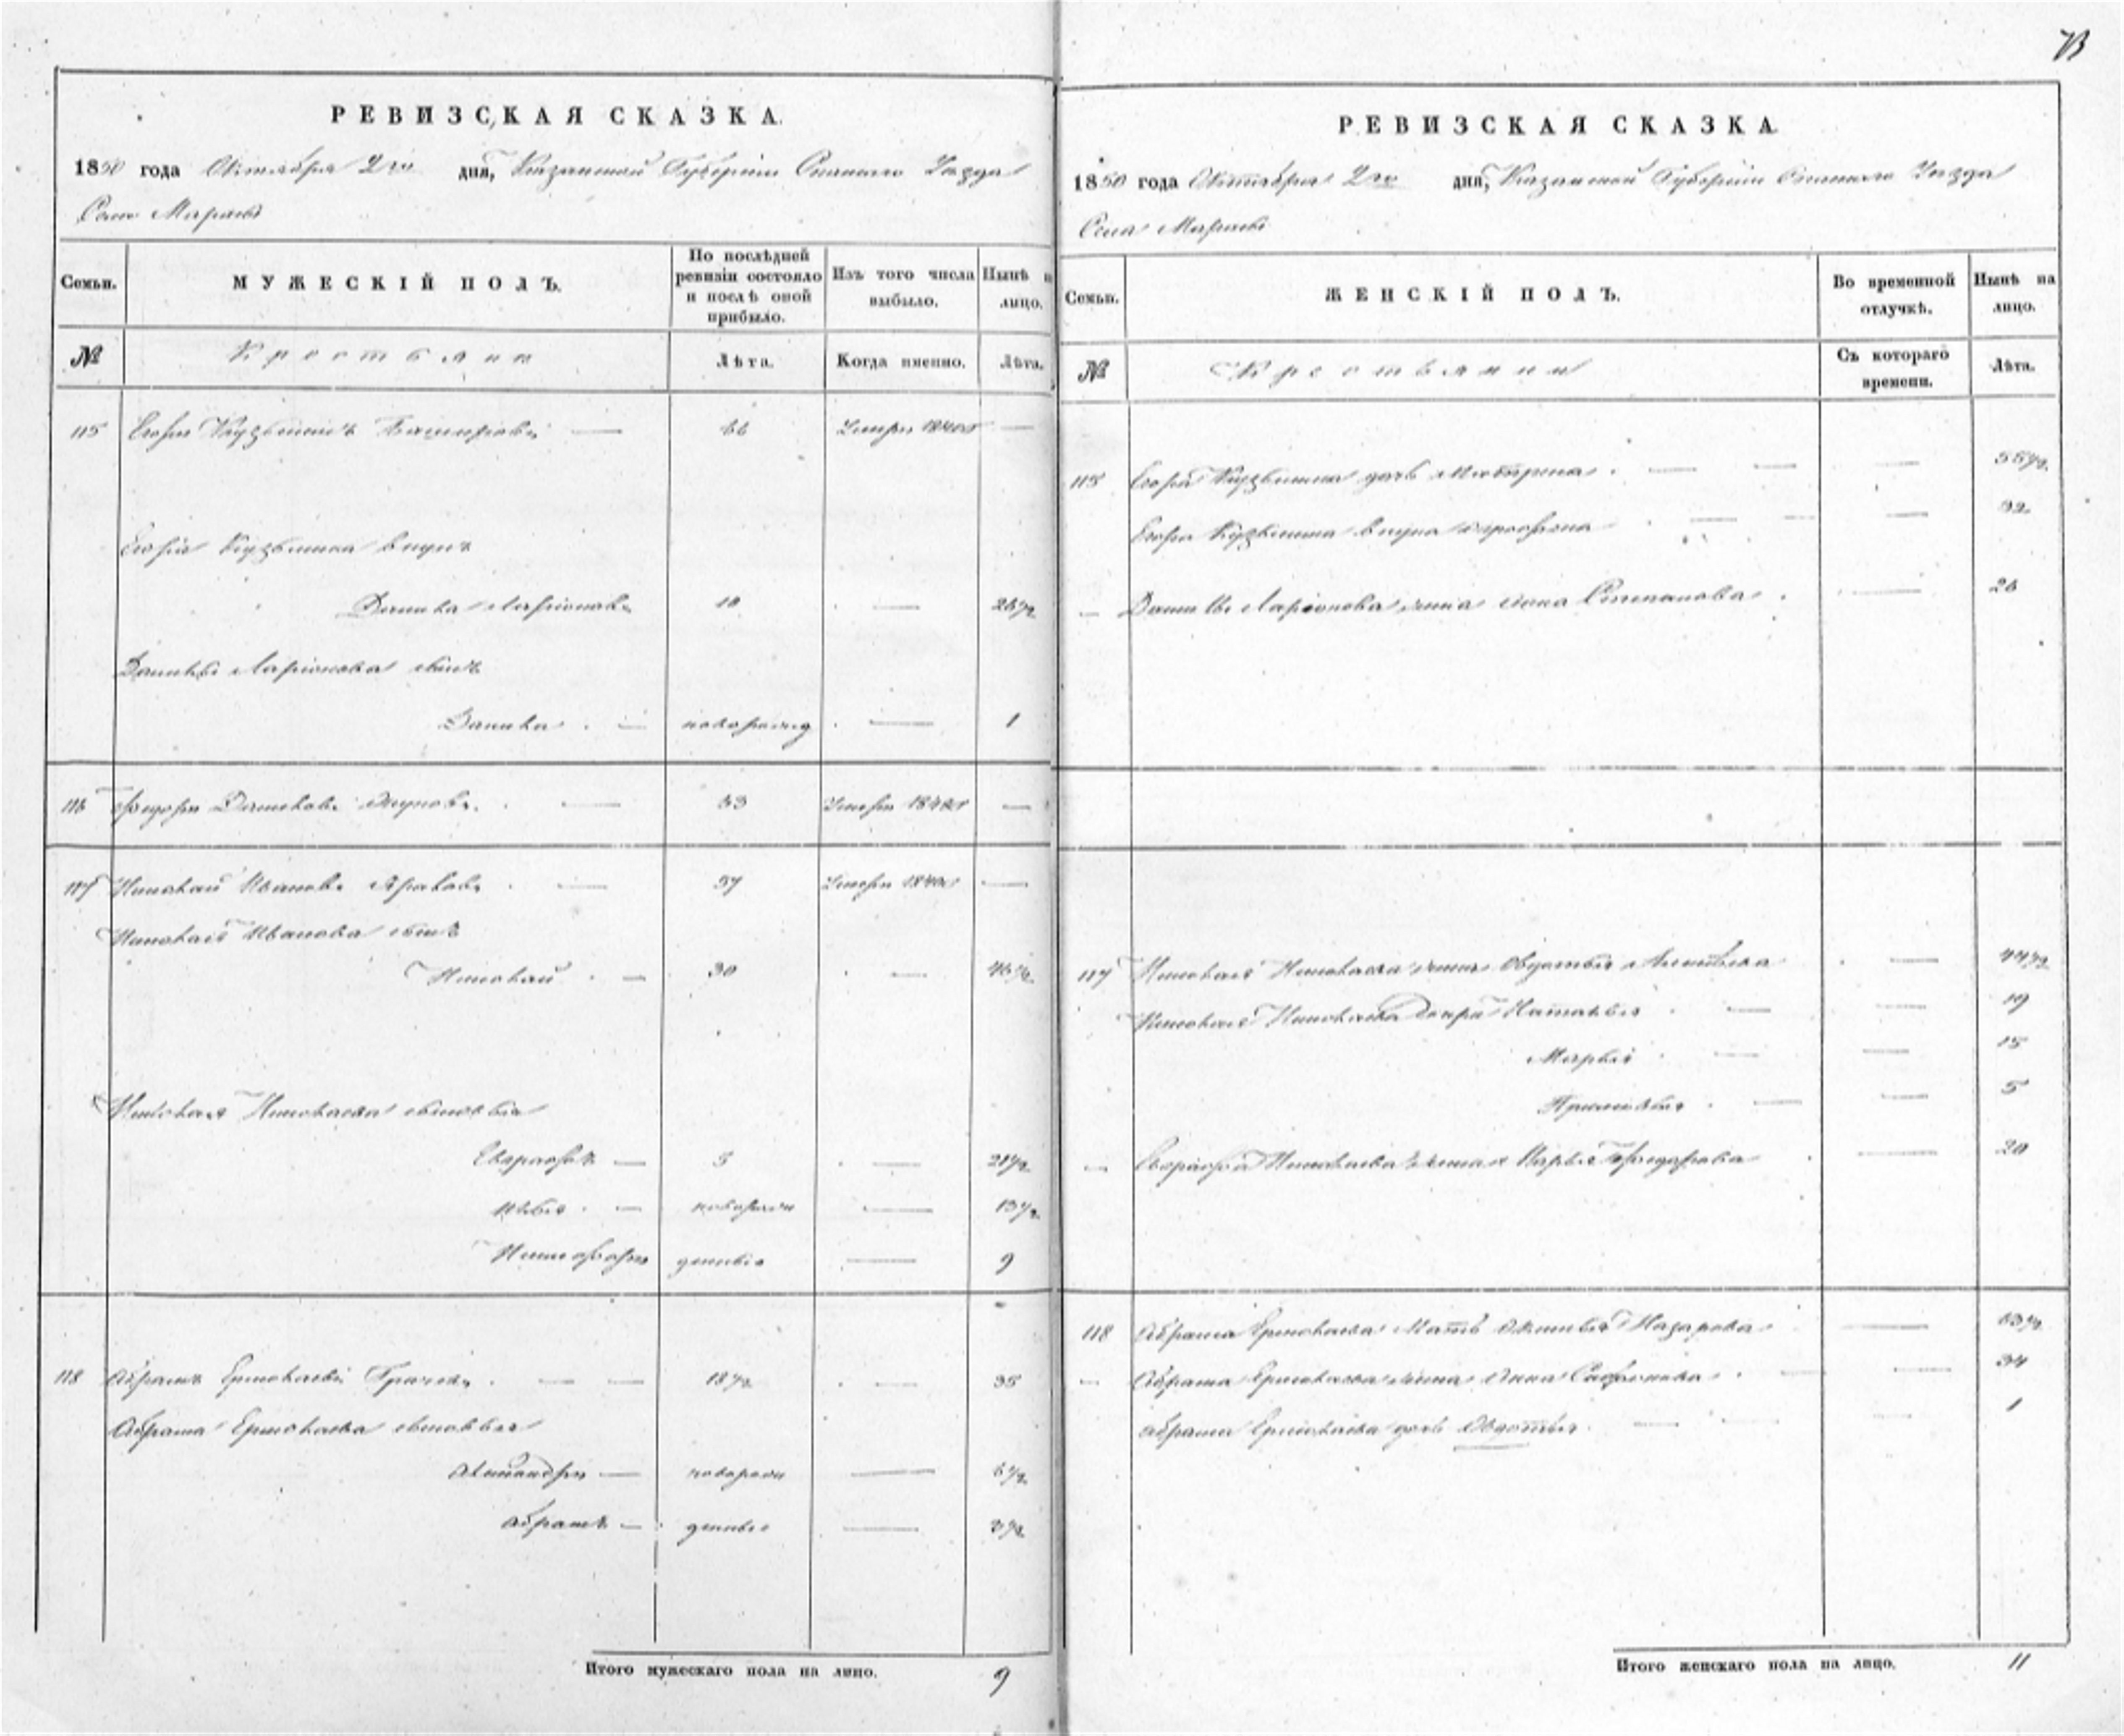 РЕВИЗСКАЯ СКАЗКА.
1850 года Октября 2го дня, Казанской Губернии Спаскаго Уезда
Село
МУЖЕСКІЙ ПОЛЪ.
Семьи.
По послѣдней ревизіи состояло и послѣ оной прибыло.
Изъ того числа выбыло.
Нынѣ на лицо.
№
Крестьяне
Лѣта.
Когда именно.
Лѣта.
115 Егоръ Кузьминъ 66 Умеръ —
Егора Кузьмина внукъ
Данила Ларіоновъ 10 — 26½
Данилы Ларіонова сынъ
Данила новорожд — 1
116 Ѳедоръ 53 Умеръ —
117 Николай Ивановъ 57 Умеръ —
Николая Иванова сынъ
Николай 30 — 46½
Николая Николаева сыновья
Евграфъ — 5 — 21½
— 13½
Никифоръ денные — 9
118 Абрамъ Ермолаевъ Грачевъ 18½ — 35
Абрама Ермолаева сыновья
Александръ — новорож — 6½
Абрамъ — денные — 3½
Итого мужескаго пола на лицо. 9
РЕВИЗСКАЯ СКАЗКА
1850 года Октября 2го дня, Казанской Губерніи Спаскаго Уезда
Села
Семьи.
ЖЕНСКІЙ ПОЛЪ.
Во временной отлучкѣ.
Нынѣ на лицо.
№
Крестьянки
Съ котораго времени.
Лѣта.
115 Егора Кузьмина дочь Матрена — 55½
Егора Кузьмина внука — 32
Данилы Ларіонова жена Анна Степанова — 26
117 Николая Николаева жена Авдотья — 44½
Николая Николаева дочери Наталья — 19
Марья — 15
5
Евграфа Николаева жена Марья Ѳедорова — 20
118 Абрама Ермолаева мать Назарова — 63½
Абрама Ермолаева жена Анна — 34
Абрама Ермолаева дочь Авдотья — 1
Итого женскаго пола на лицо. 11